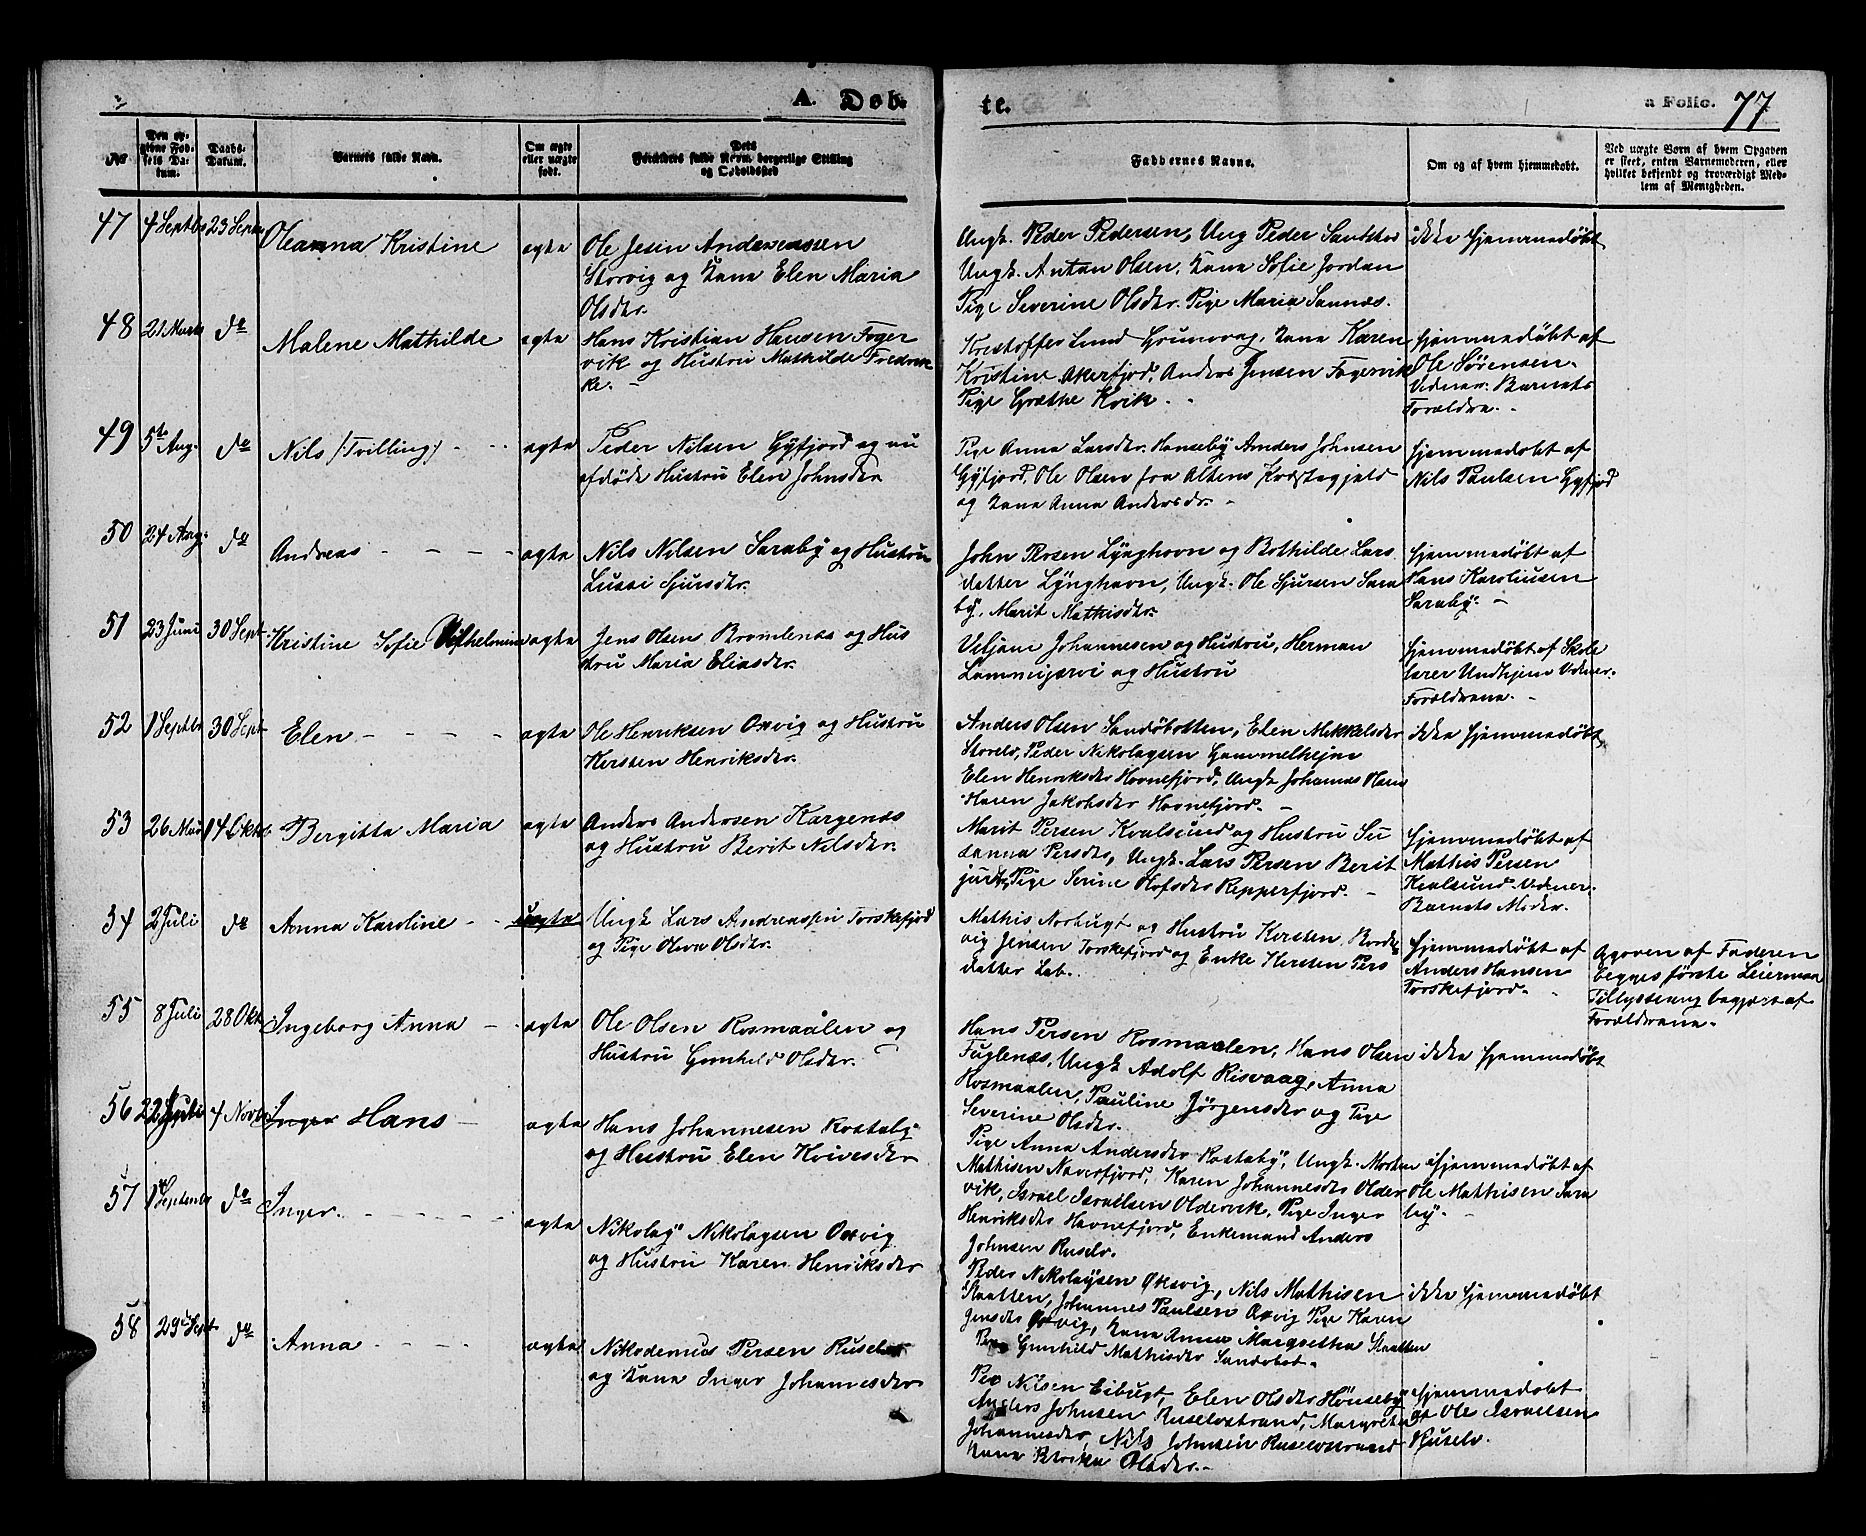 A. Døb-
te.
a Folio. 77
No
Den opgivne Fødsels Datum.
Daabs-Datum.
Barnets fulde Navn.
Om ægte eller uægte født.
Forældres fulde Navn, borgerlige Stilling og Opholdssted
Faddernes Navne.
Om og af hvem hjemmedøbt.
Ved uægte Børn af hvem Opgaven er skeet, enten Barnemoderen, eller hvilket bekjendt og troværdigt Medlem af Menigheden.
47 4 Septbr 23 Septbr Oleanna Kristine ægte
Ole Jesin Andreassen
Storvig og Kone Elen Maria
Olsdtr.
Ungk. Peder Pedersen, Ung Peder
Ungk. Anton Olsen, Kone Sofie Jordan
Pige Severine Olsdtr. Pige Maria Sannæs.
ikke hjemmedøbt
48 21 Marts do Malene Mathilde ægte
Hans Kristian Hansen Fager
vik og Hustru Mathilde Fredrik
ke. -
Kristoffer Lund Grunvaag, Kone Karen
Kristine Akerfjord, Anders Jensen Fagervik
Pige Grethe Kvik. -
hjemmedøbt af
Ole Sørensen.
Vidner: Barnets
Forældre. -
49 5te Aug. do Nils (Tvilling) - - ægte
Peder Nilsen Gyfjord og nu
afdøde Hustru Elen Johnsdtr
Pige Anna Larsdtr. Hønseby Anders Johnsen
Gyfjord, Ole Olsen fra Altens Præstegjeld
og Kone Anna Andersdr. -
hjemmedøbt af
Nils Paulsen Gyfjord
50 24 Aug. do Andreas - - - - ægte
Nils Nilsen Saraby og Hustru
Lussi Sjursdtr.
John Persen Lynghavn og Bothilde Lars
datter Lynghavn, Ungk. Ole Sjursen Sara
by, Marit Mathisdtr.
hjemmedøbt af
Hans Karoliusen
Saraby. -
51 23 Juni 30 Sept. Kristine Sofie Vilhelmine ægte
Jens Olsen Bromlenes og Hus
tru Maria Eliasdtr.
Viljam Johannesen og Hustru, Herman
Lammijærvi og Hustru
hjemmedøbt af Skole
lærer Undhjem Vidner.
Forældrene. -
52 1 Septbr 30 Sept Elen - - - - ægte
Ole Henriksen Oxvig og Hustru
Kirsten Henriksdtr.
Anders Olsen Sandøbotten, Elen Mikkelsdtr
Storelv, Peder Nikolaysen Gammelhejm
Elen Henriksdtr Hovnefjord, Ungk Johannes Hans
Karen Jakobsdtr Hovnefjord. -
ikke hjemmedøbt,
53 26 Mai 14 Oktbr Bergitta Maria ægte
Anders Andersen Kargenæs
og Hustru Berit Nilsdtr.
Marit Persen Kvalsund og Hustru Su
sanna Persdtr, Ungk. Lars Persen Berit
jord, Pige Serine Olofsdtr Repperfjord. -
hjemmedøbt af
Mathis Persen
Kvalsund. Vidner.
Barnets Moder.
54 2 Juli do Anna Karoline - - uægte
Ungk Lars Andreassen Torskefjord
og Pige Oleva Olsdtr.
Mathis Norbugt og Hustru Kirsten Borde
vig Jensen Torskefjord og Enke Kirsten Pers
datter Lab.
hjemmedøbt af
Anders Hansen
Torskefjord.
Opgiven af Faderen
begges første Leiermaal
Tillysning begjært af
Forældrene.
55 8 Juli 28 Okt. Ingeborg Anna - ægte
Ole Olsen Rosmaalen og
Hustru Gunhild Olsdtr.
Hans Persen Rosmaalen, Hans Olsen
Fuglenæs, Ungk Adolf Risvaag, Anna
Rosmaalen, Pauline Jørgensdtr og Pige
Severine Olsdtr.
ikke hjemmedøbt
56 22 Juli 4 Novbr Inger Hans - ægte
Hans Johannesen Kostaby
og Hustru Elen Kvivesdtr
Pige Anna Andersdtr Kostaby, Ungk. Morten
Mathisen Naverfjord, Karen Johannesdtr Older
vik, Israel Israelsen Oldervik, Pige Inger
Henriksdtr Havnefjord, Enkemand Anders
Johnsen Ruselv.
hjemmedøbt af
Ole Mathisen Sara
by.
57 1 Septembr do Inger. - - - - ægte
Nikolay Nikolaysen Oxvig
og Hustru Karen Henriksdtr
Peder Nikolaysen Oxvig, Nils Mathisen
Skatten, Johannes Paulsen Oxvig Pige Karen
Jensdtr Oxvig, Kone Anna Margretha Skatten
Pige Gunhild Mathisdtr Sandøbot.
ikke hjemmedøbt
58 29 Sept do Anna - - - - ægte
Nikodemus Persen Ruselv
og Kone Inger Johannesdtr
Per Nilsen Eibugt, Elen Olsdtr Hønseby
Anders Johnsen Ruselvstrand, Margretha
Johannesdtr, Nils Johnsen Ruselvstrand
Kone Olsdtr. -
hjemmedøbt
af Ole Israelsen
Ruselv.